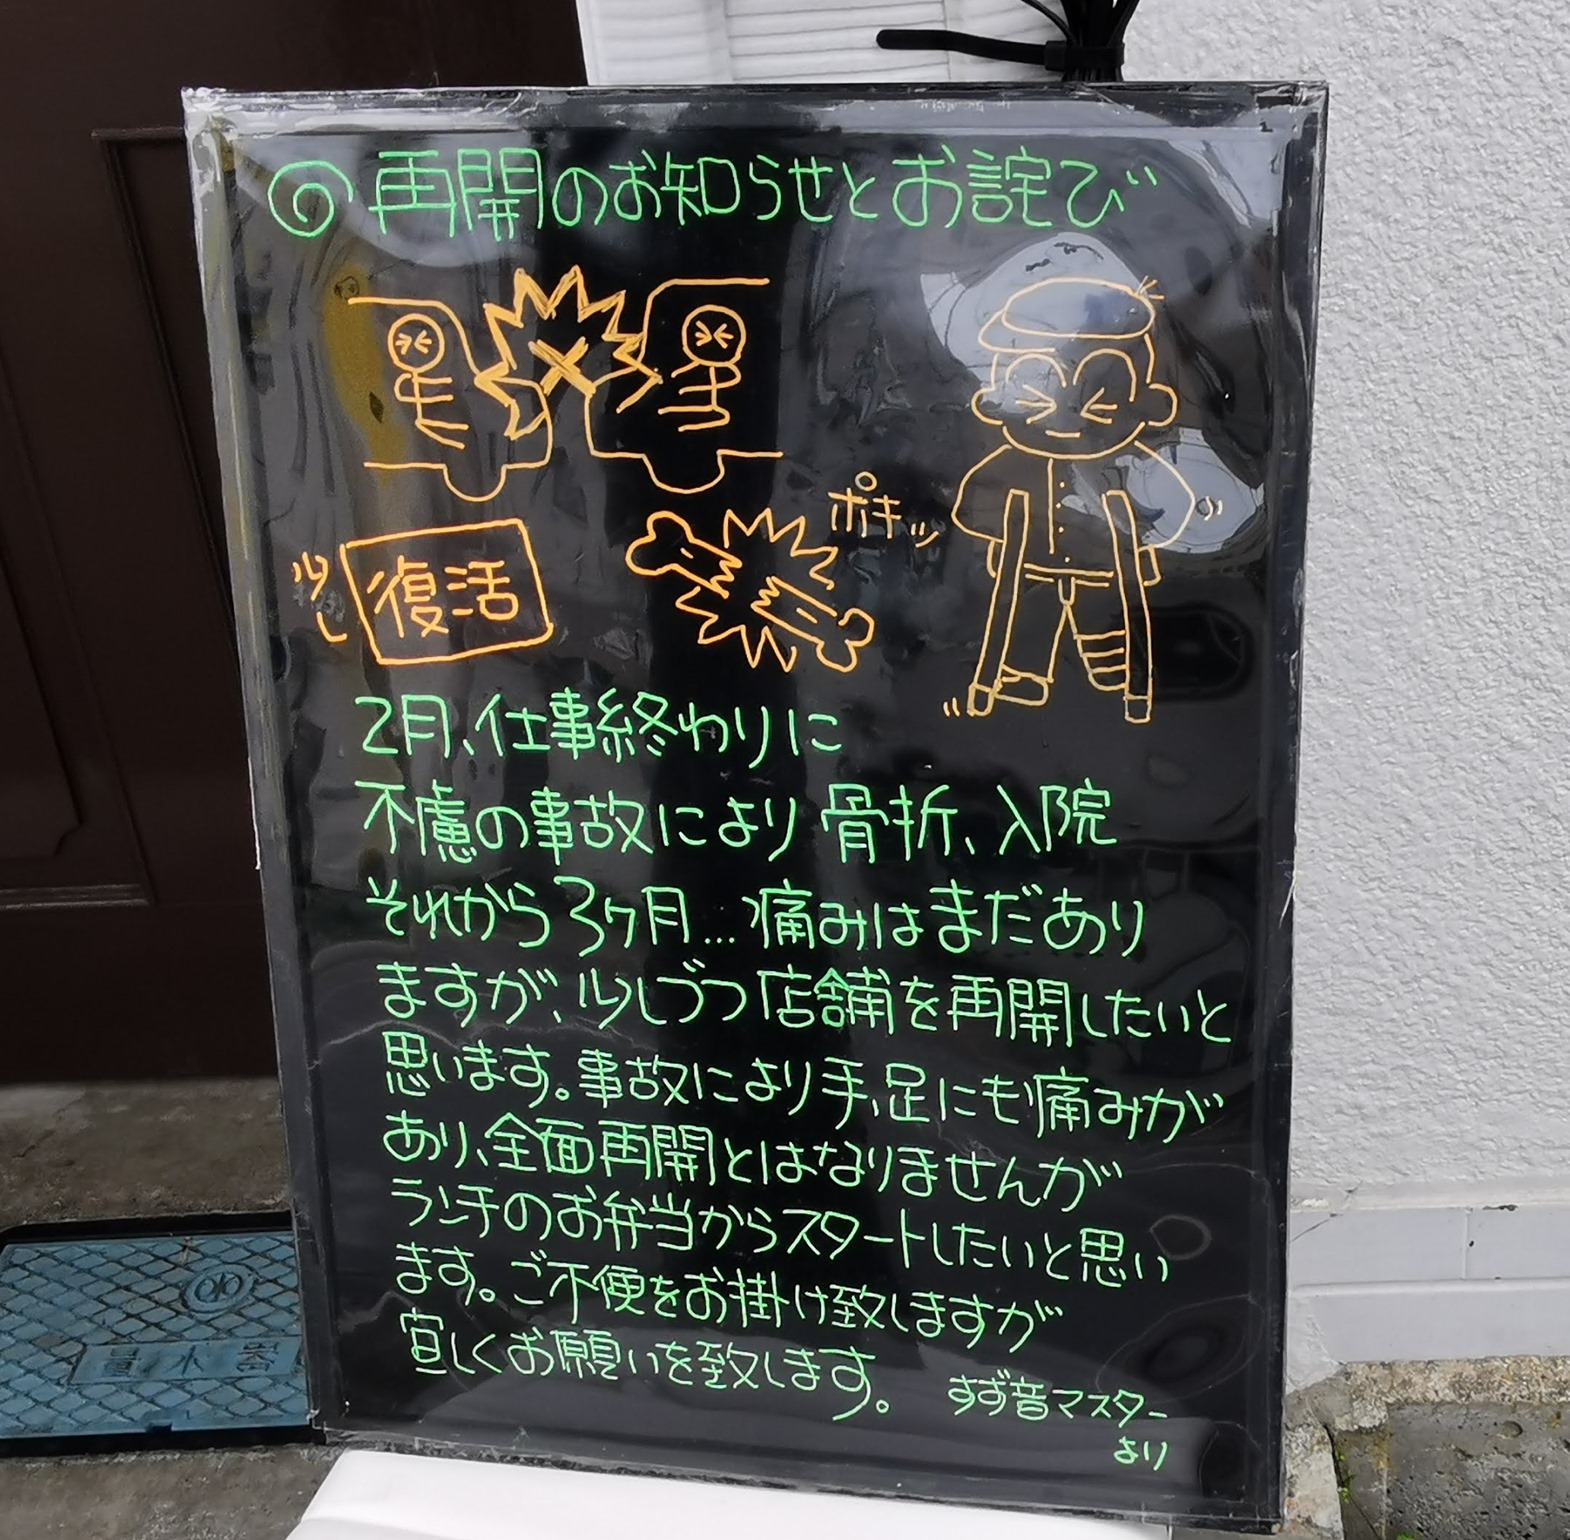 再開のお知らせとお詫び
ポキッ
少し
復活
2月、仕事終わりに
不慮の事故により骨折、入院
それから3ヶ月...痛みはまだあり
ますが、少しづつ店舗を再開したいと
思います。事故により手、足にも痛みが
あり、全面再開とはなりませんが
ランチのお弁当からスタートしたいと思い
ます。ご不便をお掛け致しますが
宜しくお願いを致します。
すず音マスター
より